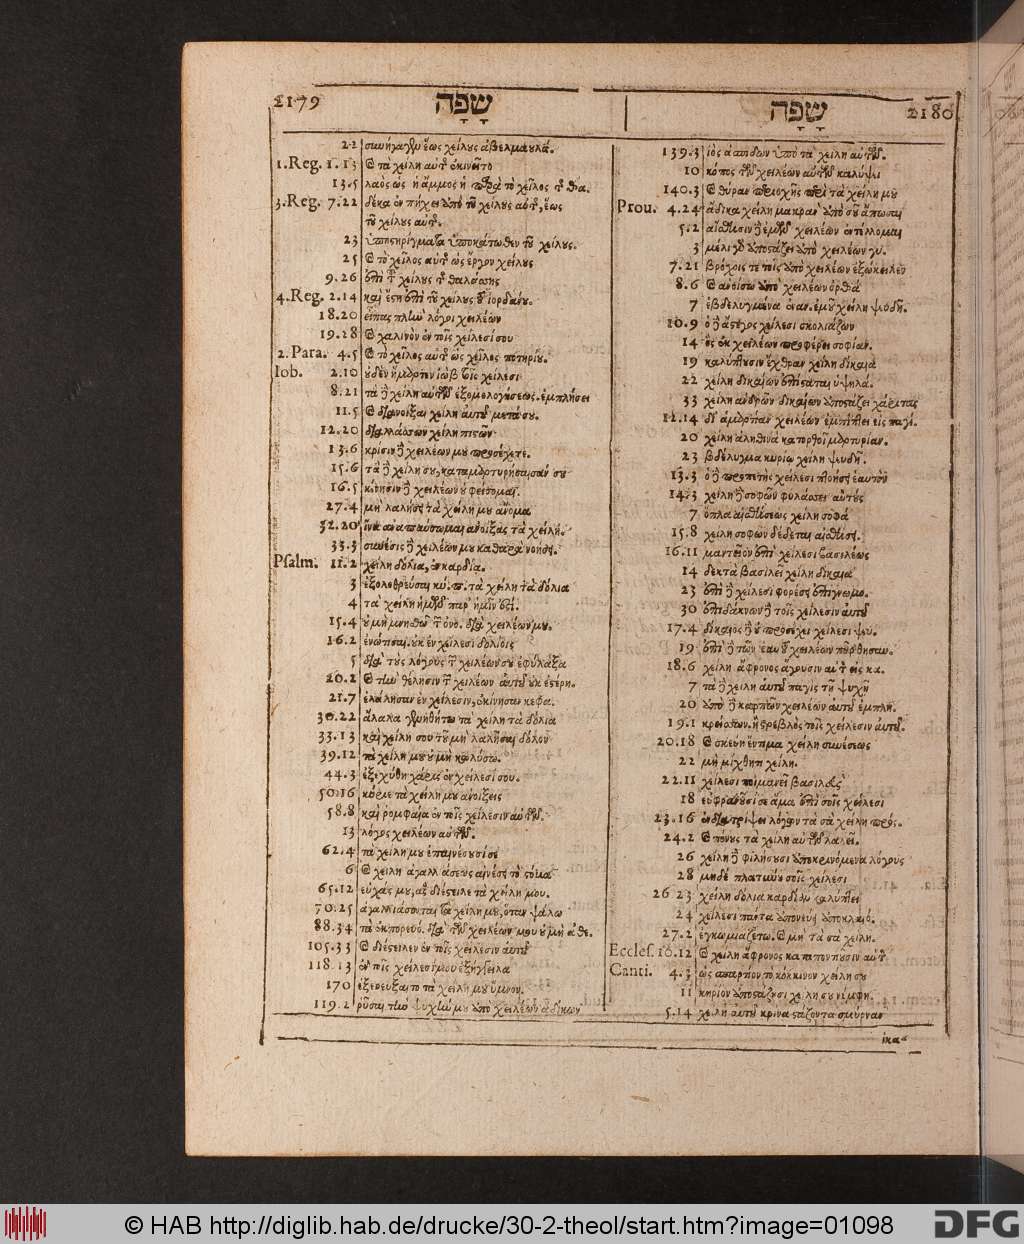 2179 שָׂפָה
22 συνήγαγεν ἕως χείλους ἀβελμαουλά.
1. Reg. 1.13 καὶ τὰ χείλη αὐτῆς ἐκινεῖτο
13.5 λαὸς ὡς ἡ ἄμμος ἡ παρὰ τὸ χεῖλος τῆς θα.
3. Reg. 7.22 δέκα ἐν πήχει ἀπὸ τοῦ χείλους αὐτῆς, ἕως
τοῦ χείλους αὐτῆς.
23 ὑποστηρίγματα ὑποκάτωθεν τοῦ χείλους.
25 καὶ τὸ χεῖλος αὐτῆς ὡς ἔργον χείλους
9.26 ἐπὶ τοῦ χείλους τῆς θαλάσσης
4. Reg. 2.14 καὶ ἔστη ἐπὶ τοῦ χείλους τοῦ ἰορδάνου.
18.20 εἶπας πλὴν λόγοι χειλέων
19.28 καὶ χαλινὸν ἐν τοῖς χείλεσί σου
2. Para. 4.5 καὶ τὸ χεῖλος αὐτῆς ὡς χεῖλος ποτηρίου.
Iob. 2.10 οὐδὲν ἥμαρτεν ἰὼβ τοῖς χείλεσι
8.21 τὰ δὲ χείλη αὐτῶν ἐξομολογήσεως. ἐμπλήσει
11.5 καὶ διανοίξει χείλη αὐτοῦ μετὰ σου.
12.20 διαλλάσσων χείλη πιστῶν
13.6 κρίσιν δὲ χειλέων μου προσέχετε.
15.6 τὰ δὲ χείλη σου, καταμαρτυρήσουσιν σου
16.5 κίνησιν δὲ χειλέων οὐ φείσομαι.
27.4 μὴ λαλήσειν τὰ χείλη μου ἄνομα
32.20 ἵνα ἀναπαύσωμαι ἀνοίξας τὰ χείλη.
33.3 συνέσις δὲ χειλέων μου καθαρὰ νοήσει.
Psalm. 11.2 χείλη δόλια, ἐν καρδία.
3 ἐξολοθρεύσαι κύ. π. τὰ χείλη τὰ δόλια
4 τὰ χείλη ἡμῶν παρ' ἡμῖν ἐστί.
15.4 οὐ μὴ μνησθῶ τῶν ὀνο. διὰ χειλέων μου.
16.2 ἐνώτισαι. οὐκ ἐν χείλεσι δολίοις
5 διὰ τοὺς λόγους τῶν χειλέων σου ἐφύλαξα
20.2 καὶ τὴν θέλησιν τῶν χειλέων αὐτοῦ οὐκ ἐστέρη.
21.7 ἐλάλησαν ἐν χείλεσιν, ἐκίνησαν κεφα.
30.22 ἄλαλα γενηθήτω τὰ χείλη τὰ δόλια
33.13 καὶ χείλη σου τοῦ μὴ λαλῆσαι δόλον
39.12 τὰ χείλη μου οὐ μὴ κωλύσω.
44.3 ἐξεχύθη χάρις ἐν χείλεσί σου.
50.16 κύριε τὰ χείλη μου ἀνοίξεις
58.8 καὶ ῥομφαία ἐν τοῖς χείλεσιν αὐτῶν.
13 λόγος χειλέων αὐτῶν.
62.4 τὰ χείλη μου ἐπαινέσουσί σε
6 καὶ χείλη ἀγαλλιάσεως αἰνέσει τὸ στόμα
65.12 εὐχάς μου, ἃς διέστειλε τὰ χείλη μου.
70.25 ἀγαλλιάσονται τὰ χείλη μου, ὅταν ψάλω
88.34 τὰ ἐκπορευό. διὰ τῶν χειλέων μου οὐ μὴ ἀθε.
105.33 καὶ διέστειλεν ἐν τοῖς χείλεσιν αὐτοῦ
118.13 ἐν τοῖς χείλεσί μου ἐξήγγειλα
170 ἐξερεύξαιτο τὰ χείλη μου ὕμνον.
119.2 ῥῦσαι τὴν ψυχήν μου ἀπὸ χειλέων ἀδίκων
שָׂפָה 2180
139.3 ἰὸς ἀσπίδων ὑπὸ τὰ χείλη αὐτῶν.
10 κόπος τῶν χειλέων αὐτῶν καλύψει
140.3 καὶ θύραν περιοχῆς περὶ τὰ χείλη μου
Prou. 4.24 ἄδικα χείλη μακρὰν ἀπὸ σοῦ ἄπωσαι
5.2 αἴσθησιν δὲ ἐμῶν χειλέων ἐντέλλομαι
3 μέλι γὰρ ἀποστάζει ἀπὸ χειλέων γυ.
7.21 βρόχοις τε τοῖς ἀπὸ χειλέων ἐξώκειλεν
8.6 καὶ ἀνοίσω ἀπὸ χειλέων ὀρθὰ
7 ἐβδελυγμένα ἐναν. ἐμοῦ χείλη ψευδῆ.
10.9 ὁ δὲ ἄστεγος χείλεσι σκολιάζων
14 ὃς ἐκ χειλέων προφέρει σοφίαν.
19 καλύπτουσιν ἔχθραν χείλη δίκαια
22 χείλη δικαίων ἐπίσταται ὑψηλά.
33 χείλη ἀνδρῶν δικαίων ἀποστάζει χάριτας
12.14 δι' ἁμαρτίαν χειλέων ἐμπίπτει εἰς παγί.
20 χείλη ἀληθινὰ κατορθοῖ μαρτυρίαν.
23 βδέλυγμα κυρίῳ χείλη ψευδῆ.
13.3 ὁ δὲ προπετὴς χείλεσι πτοήσει ἑαυτὸν
14.3 χείλη δὲ σοφῶν φυλάσσει αὐτοὺς
7 ὅπλα αἰσθήσεως χείλη σοφά
15.8 χείλη σοφῶν δέδεται αἰσθήσει.
16.11 μαντεῖον ἐπὶ χείλεσι βασιλέως
14 δεκτὰ βασιλεῖ χείλη δίκαια
23 ἐπὶ δὲ χείλεσι φορέσει ἐπιγνωμο.
30 ἐπιδάκνων δὲ τοῖς χείλεσιν αὐτοῦ
17.4 δίκαιος δὲ οὐ προσέχει χείλεσι ψευ.
18.6 χείλη ἄφρονος ἄγουσιν αὐτὸν εἰς κα.
7 τὰ δὲ χείλη αὐτοῦ παγὶς τῇ ψυχῇ
20 ἀπὸ δὲ καρπῶν χειλέων αὐτοῦ ἐμπλη.
19.1 κρείσσων. ἢ στρεβλὸς τοῖς χείλεσιν αὐτοῦ.
20.18 καὶ σκεύη ἔντιμα χείλη συνέσεως
22 μὴ μίχθητι χείλη.
22.11 χείλεσι ποιμανεῖ βασιλεὺς
18 εὐφρανοῦσί σε ἅμα ἐπὶ σοῖς χείλεσι
23.16 ἐνδιατρίψει λόγοις τὰ σὰ χείλη πρός.
24.2 καὶ πόνους τὰ χείλη αὐτῶν λαλεῖ.
26 χείλη δὲ φιλήσουσι ἀποκρινόμενα λόγους
28 μηδὲ πλατύνου σοῖς χείλεσι
26 23 χείλη δόλια καρδίαν καλύπτει
24 χείλεσι πάντα ἀπονεύει ἀποκλαιό.
27.2 ἐγκωμιαζέτω. καὶ μὴ τὰ σὰ χείλη.
Eccles. 10.12 καὶ χείλη ἄφρονος καταποντιοῦσιν αὐτὸν
Canti. 4.3 ὡς σπαρτίον τὸ κόκκινον χείλη σου
11 κηρίον ἀποστάζουσι χείλη σου νύμφη.
5.14 χείλη αὐτοῦ κρίνα στάζοντα σμύρναν
ικα-
© HAB http://diglib.hab.de/drucke/30-2-theol/start.htm?image=01098
DFG